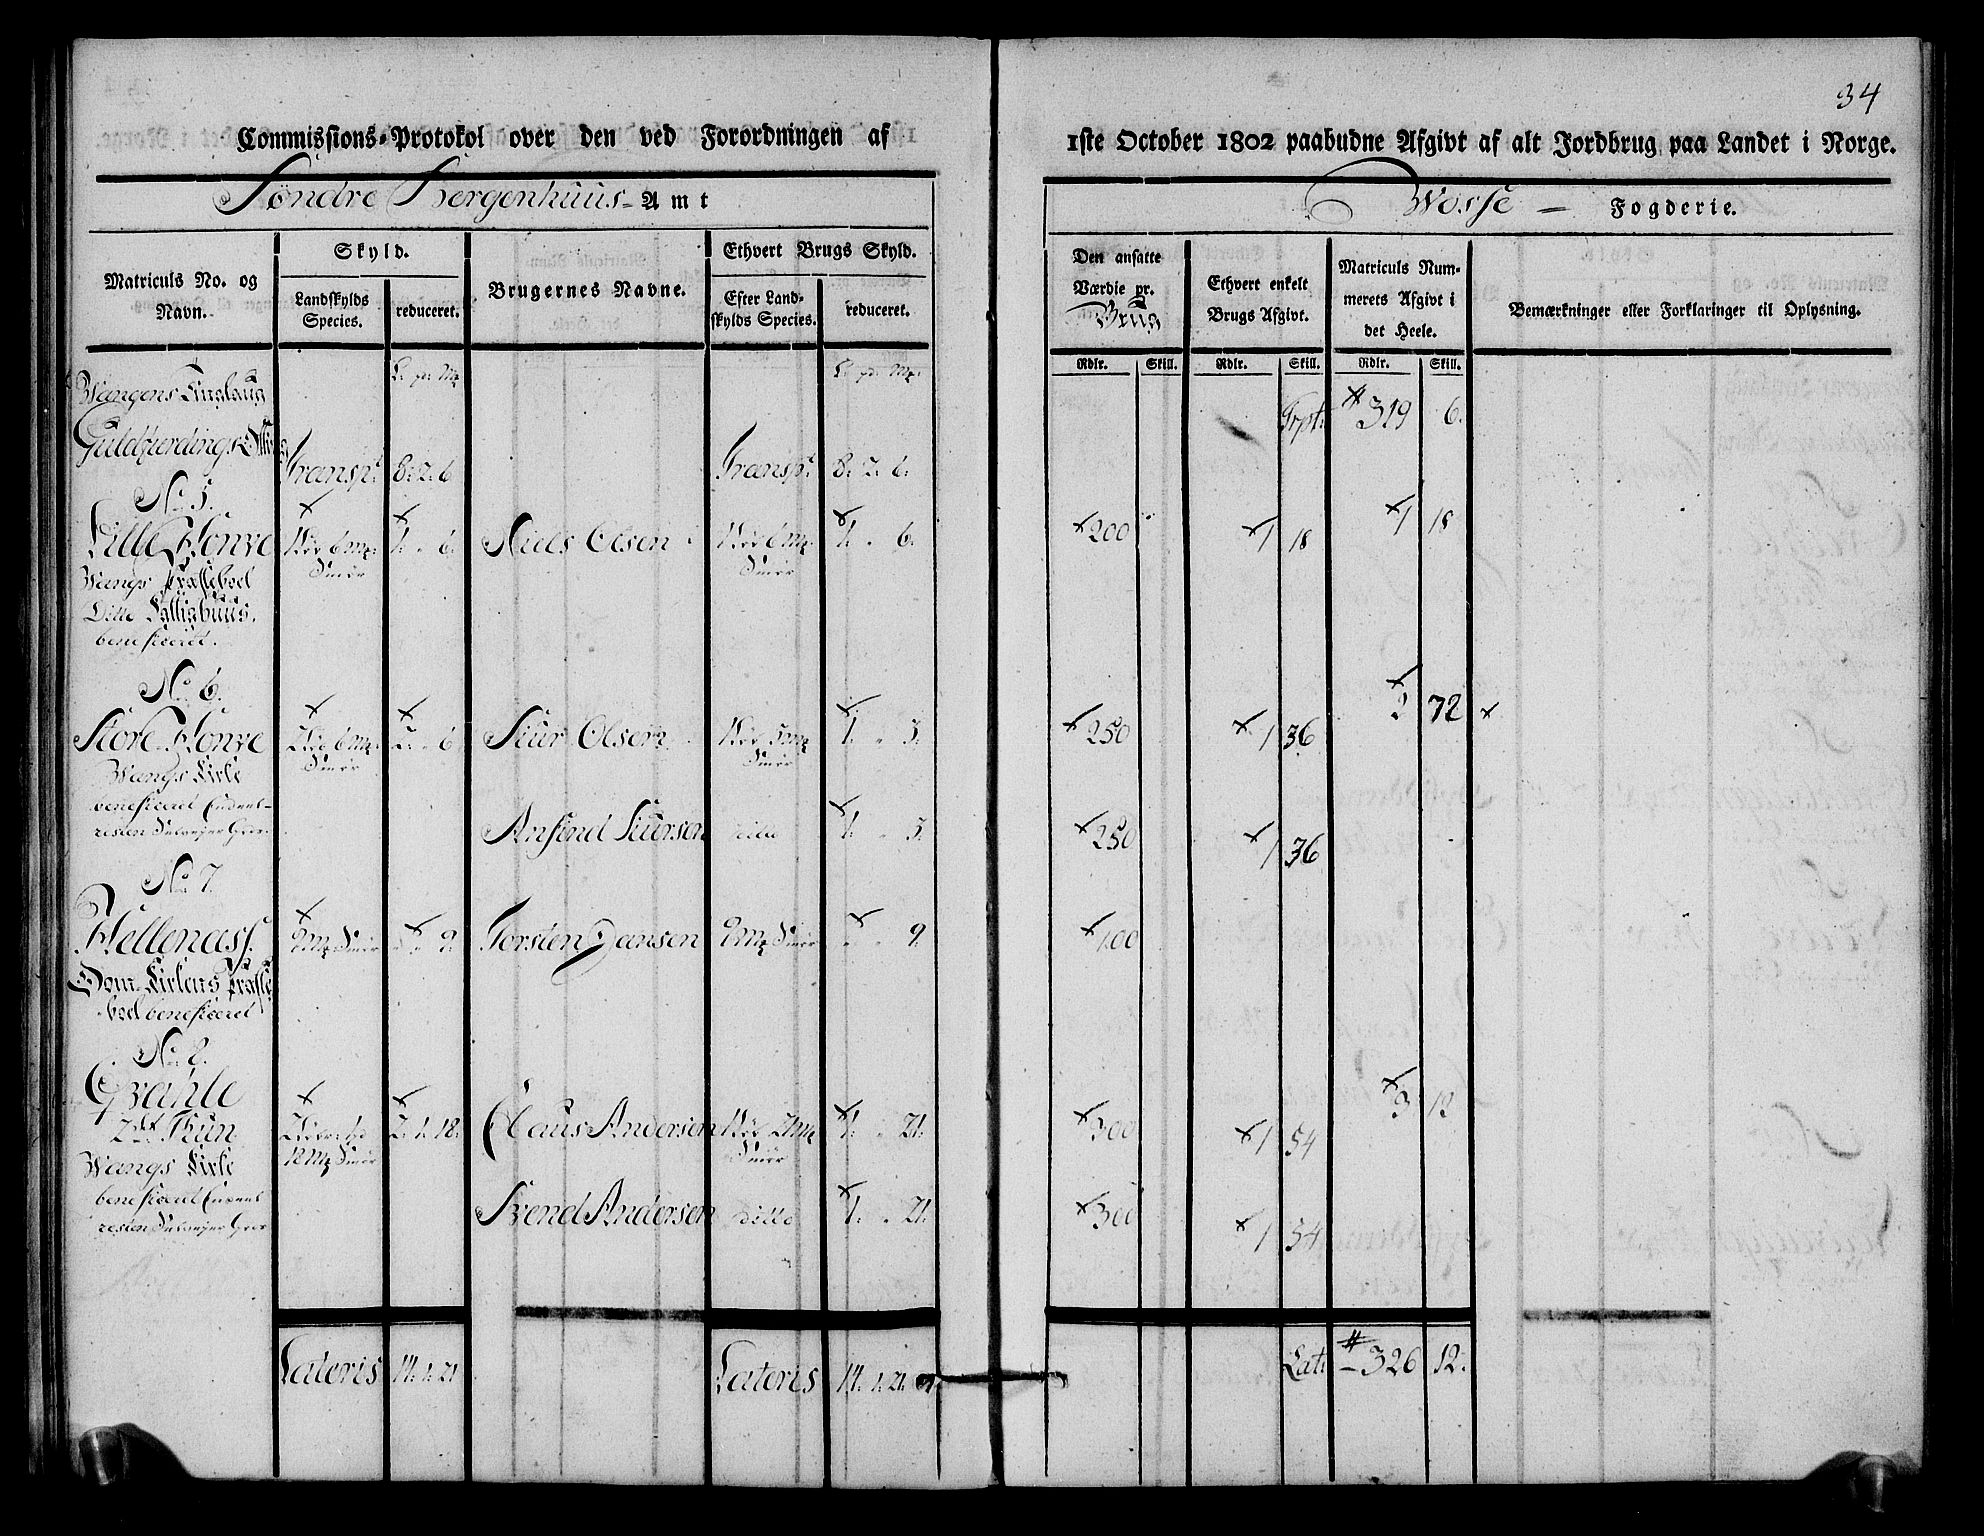 34
Commissions-Protokol over den ved Forordningen af 1ste October 1802 paabudne Afgivt af alt Jordbrug paa Landet i Norge.
Søndre Bergenhuus Amt
Wosse Fogderie.
Matriculs No. og Navn.
Skyld.
Landskylds Species.
reduceret.
Brugernes Navne.
Ethvert Brugs Skyld.
Efter Landskylds Species.
reduceret.
Den ansatte Værdie pr. Brug
Ethvert enkelt Brugs Afgivt.
Matriculs Nummerets Afgivt i det Heele.
Bemærkninger eller Forklaringer til Oplysning.
Rdlr. Skill. Rdlr. Skill. Rdlr. Skill.
Wangens Tinglaug
Trpt. 319 6.
Transp. 8. 2. 6. Transp. 8. 2. 6.
No. 5.
Lille Hønve 1. 6. Niels Olsen 1. 6. 200 1 18 1 18
Smør Smør
Wangs Præsteboel
Ditto
beneficeret.
No. 6.
Store Hønve 2. 6 Siur Olsen 1. 3. 250 1 36 2 72
Smør Smør
Wangs Kirke
beneficeret
Anfind Siursen ditto 1. 3. 250 1 36
No. 7.
Hellenæss. 9 Mk Smør 9. Torsten Hansen 9 Mk Smør 9. 100
Dom Kirkens Præste
boel beneficeret
No. 8.
Gvahle
Claus Andersen 1. 21. 300 1 54 3 12
2. 1. 18.
12 Mk Smør Smør
Wangs Kirke
beneficeret
Svend Andersen ditto 1. 21. 300 1 54
Lateris 14. 1. 21 Lateris 14. 1. 21. Lat. 326 12.